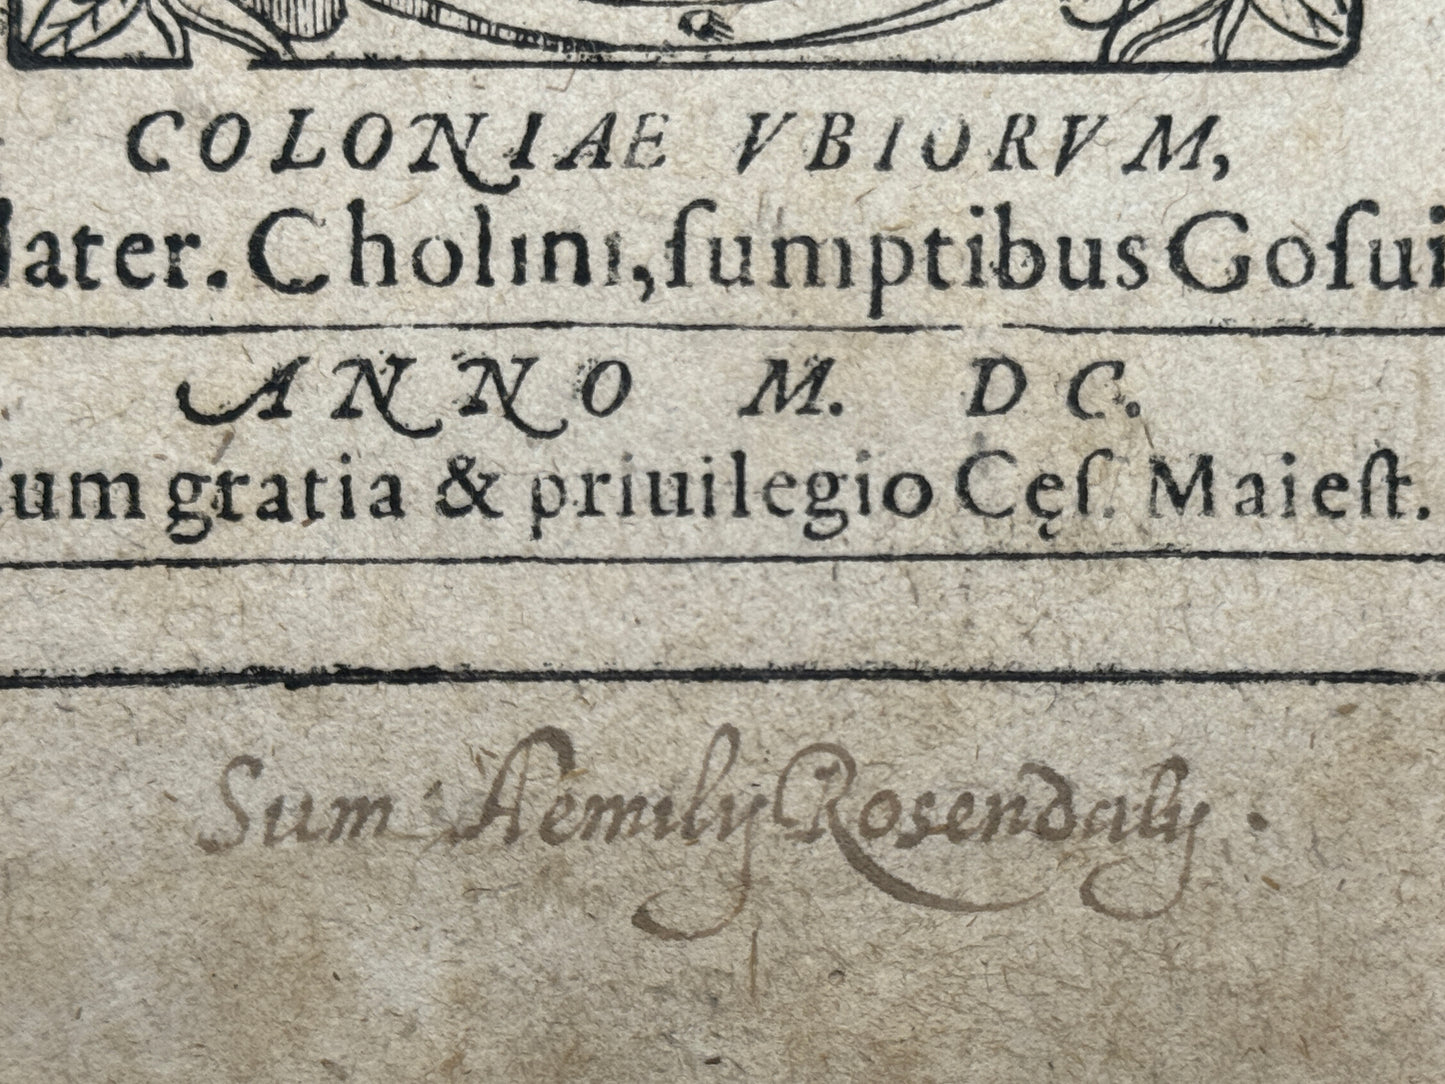 COLONIAE VBIORVM,
ater. Cholini, ſumptibus Goſui
ANNO M. DC.
um gratia & priuilegio Cęſ. Maieſt.
Sum Aemily Rosendaly.